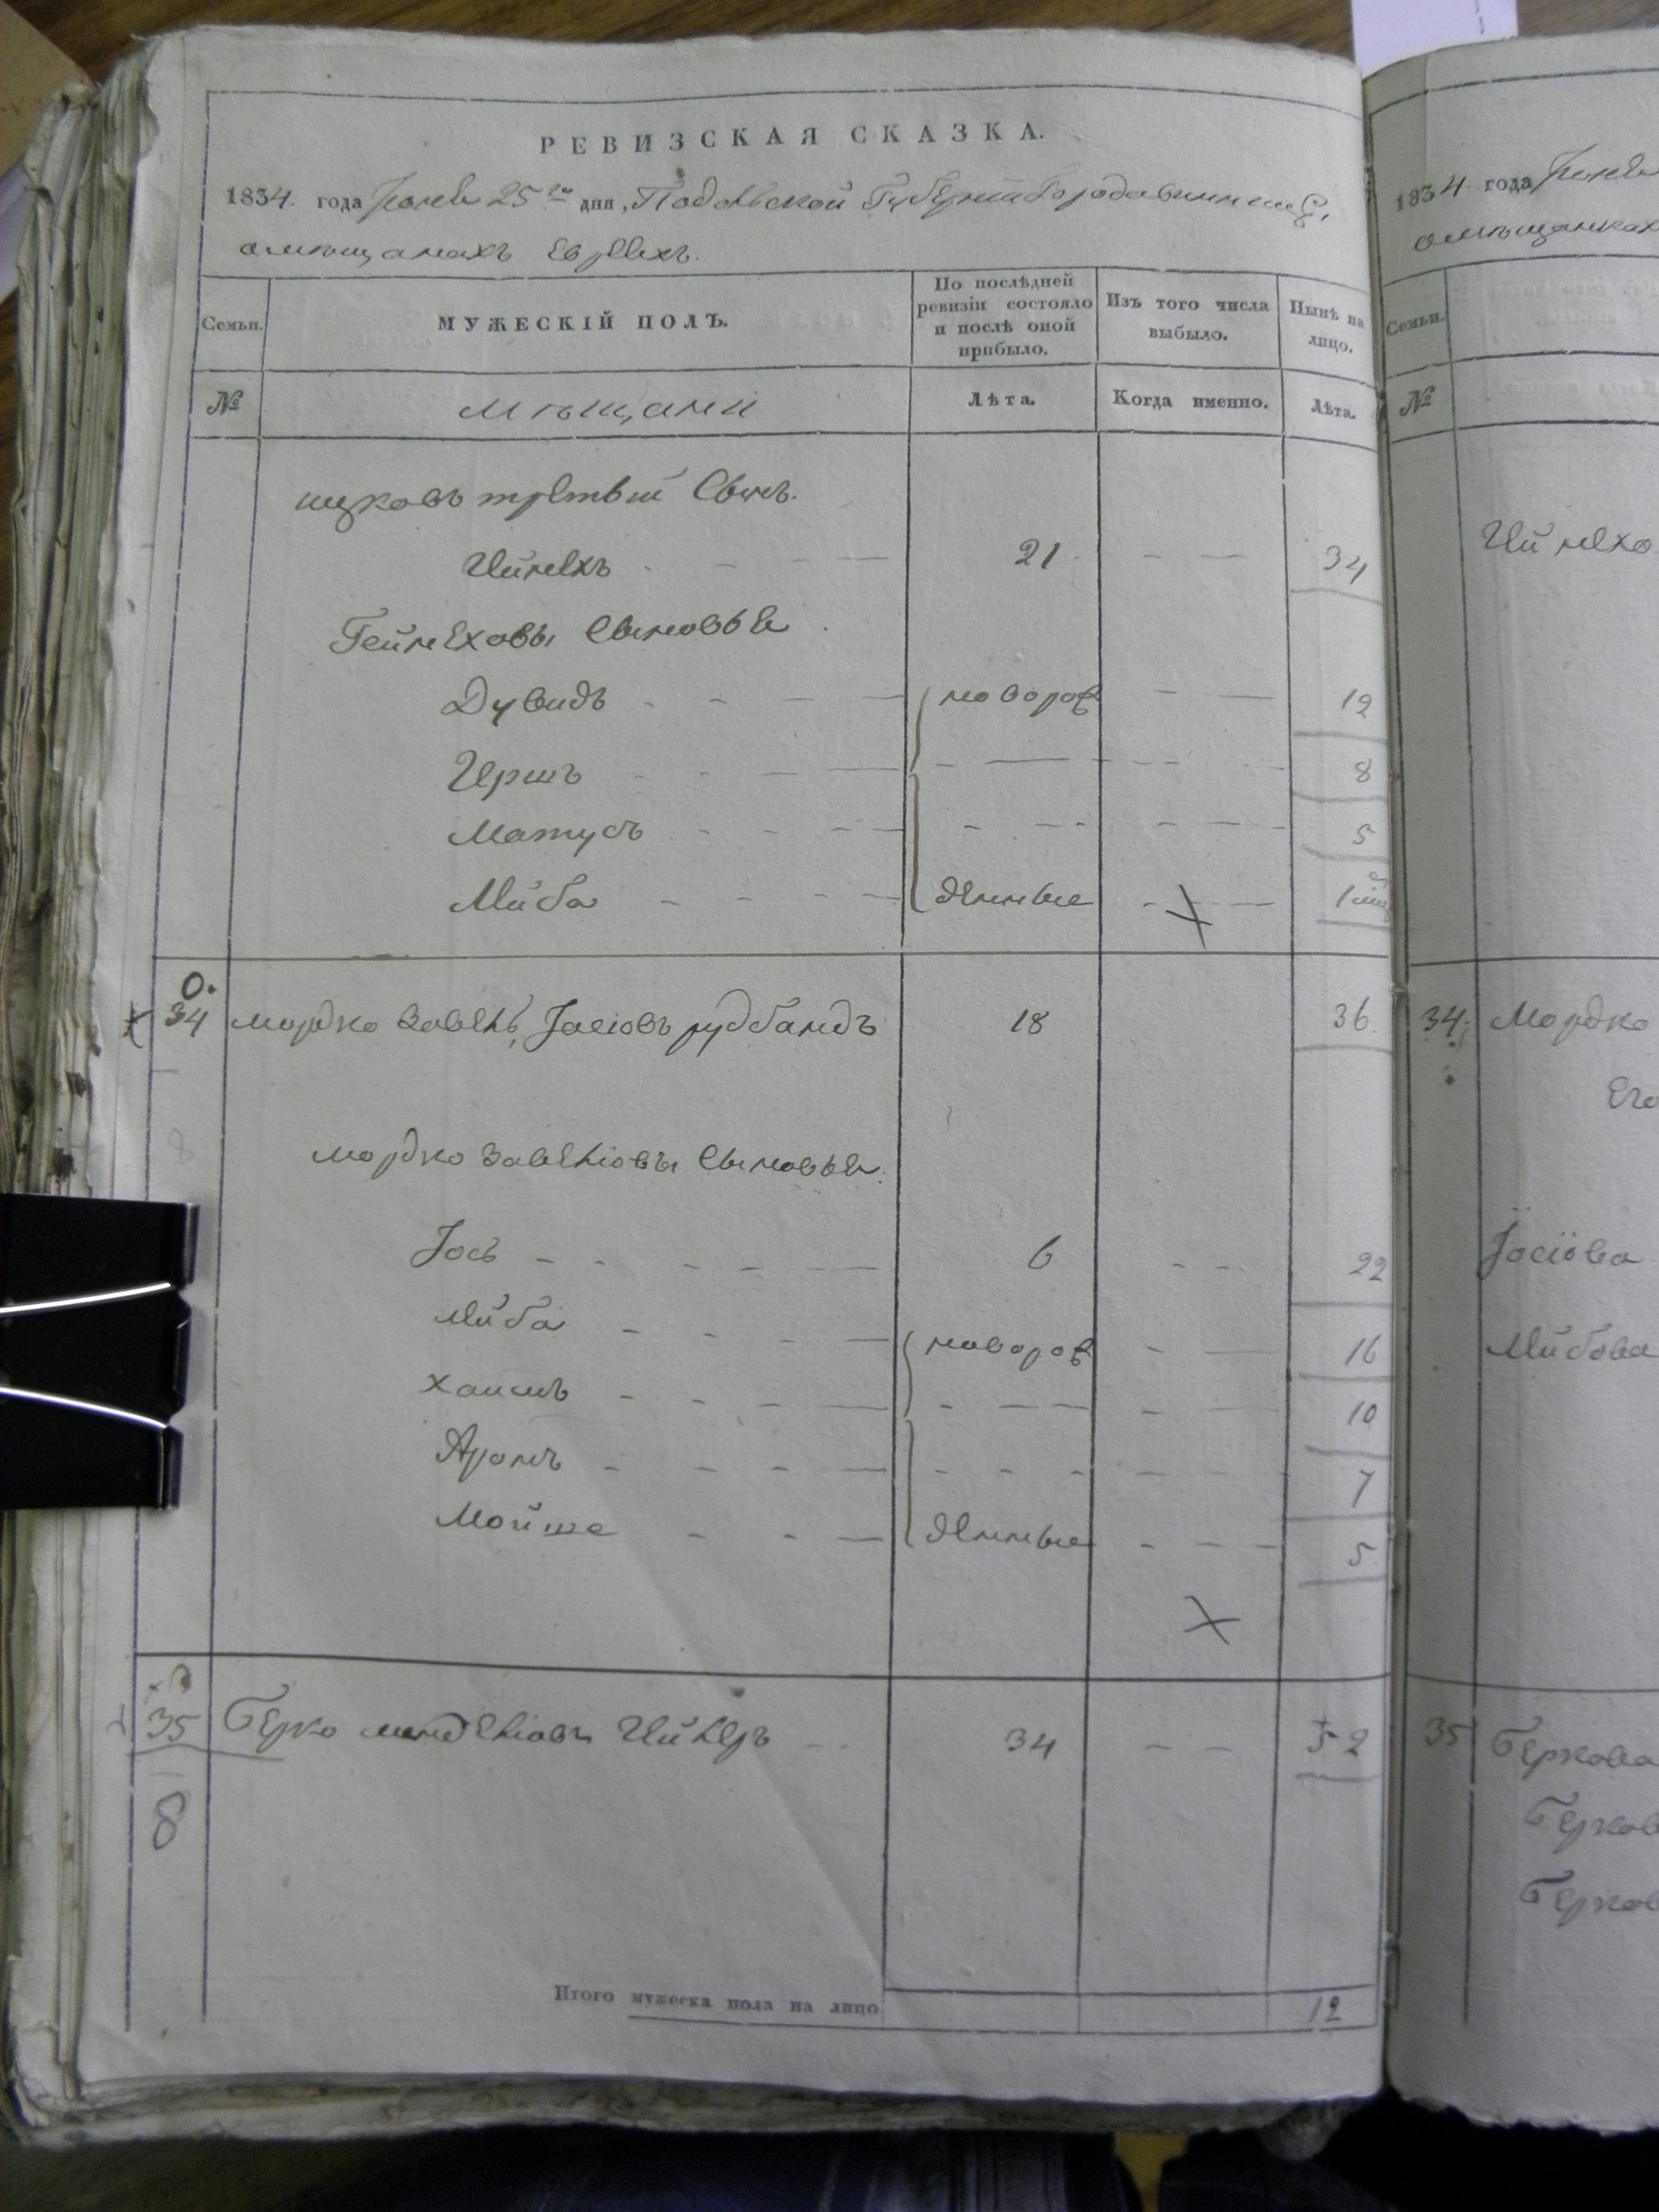 РЕВИЗСКАЯ СКАЗКА.
1834. года Іюня 25го дня, Подольской Губерніи Города Винницы
о мѣщанахъ Евреяхъ.
Семьи.
МУЖЕСКІЙ ПОЛЪ.
По послѣдней ревизіи состояло и послѣ оной прибыло.
Изъ того числа выбыло.
Нынѣ на лицо.
№
Мѣщани
Лѣта.
Когда именно.
Лѣта.
ицковъ третьій Сынъ.
Гейнехъ 21 34
Гейнеховы Сыновья
Дувидъ новорож 12
Гершъ 8
Матусъ 5
Лейба денные 1
0.
34 Мордко Завель Іосіовъ рудбандъ 18 36.
Мордко Завеліовы Сыновья.
Іось 6 22
Лейба новорож 16
Хаимъ 10
Аронъ 7
Мойше денные 5
35 Берко менделіовъ 34 52
8
Итого мужеска пола на лицо 12
1834 года Іюня
о мѣщанках
Семьи.
№
Гейнехо
34. Мордко
Его
Іосіова
Лейбова
35 Беркова
Берков
Берков